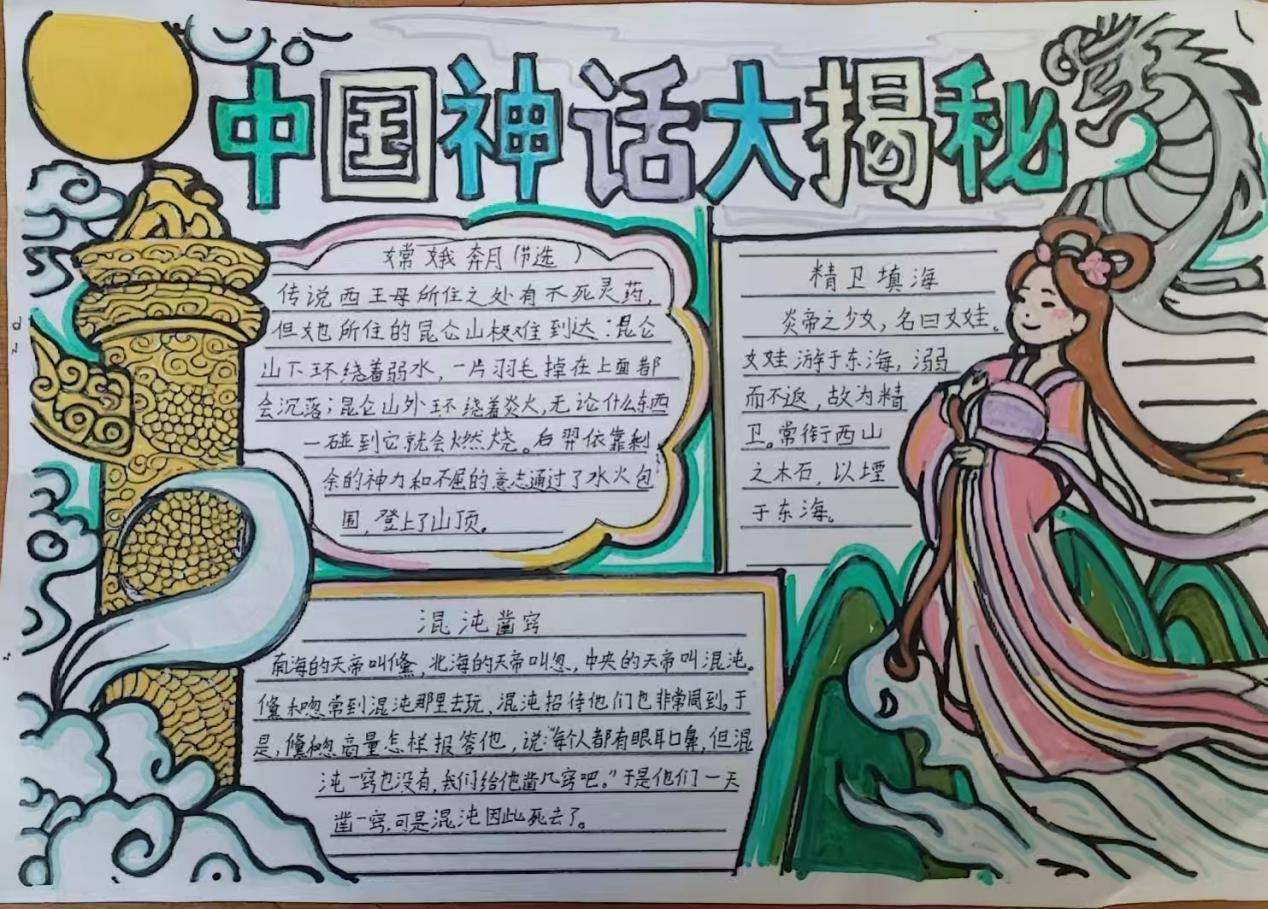 中国神话大揭秘
嫦娥奔月(节选)
传说西王母所住之处有不死灵药,
但她所住的昆仑山极难到达:昆仑
山下环绕着弱水,一片羽毛掉在上面都
会沉落;昆仑山外环绕着炎火,无论什么东西
一碰到它就会燃烧。后羿依靠剩
余的神力和不屈的意志通过了水火包
围,登上了山顶。
精卫填海
炎帝之少女,名曰女娃。
女娃游于东海,溺
而不返,故为精
卫。常衔西山
之木石,以堙
于东海。
混沌凿窍
南海的天帝叫儵,北海的天帝叫忽,中央的天帝叫混沌。
儵和忽常到混沌那里去玩,混沌招待他们也非常周到。于
是,儵和忽商量怎样报答他,说:“每个人都有眼耳口鼻,但混
沌一窍也没有,我们给他凿几窍吧。”于是他们一天
凿一窍,可是混沌因此死去了。